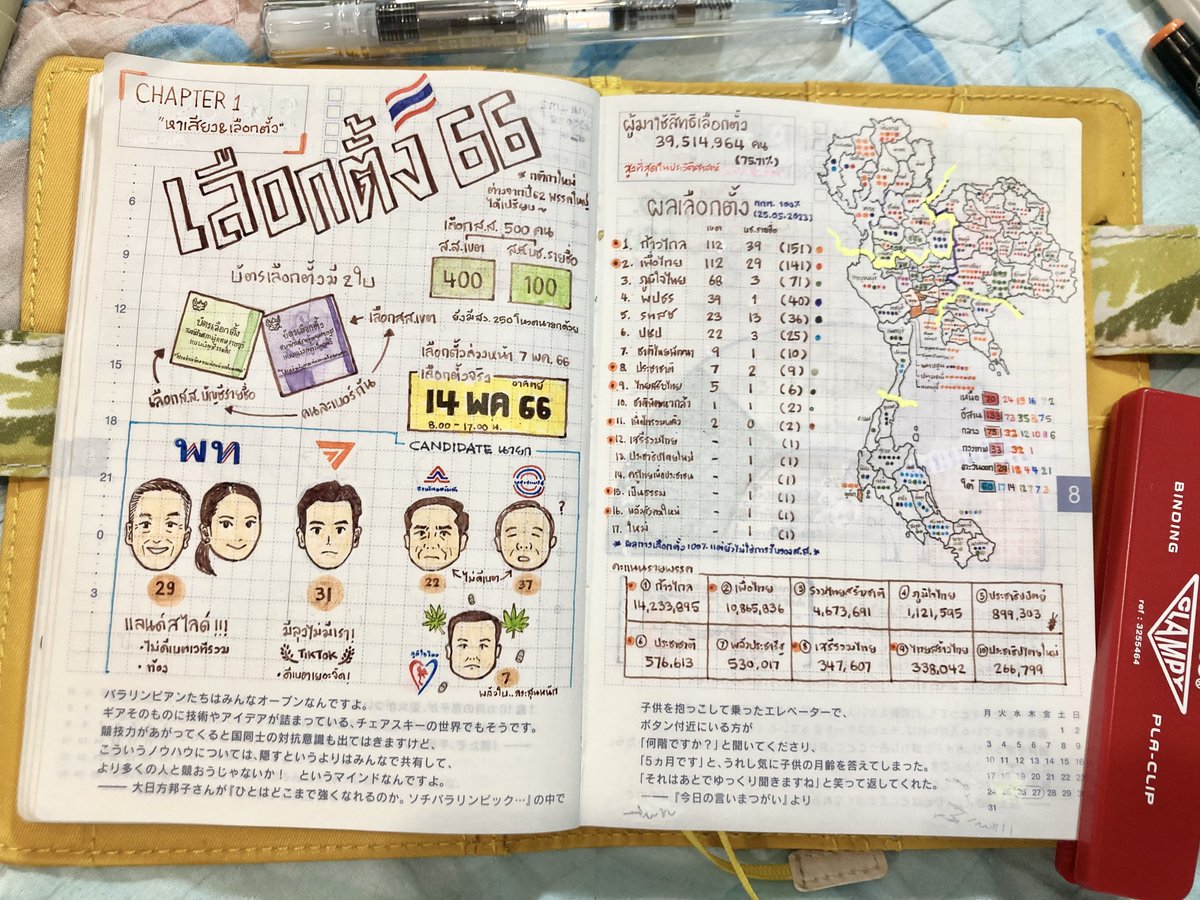 CHAPTER 1
"หาเสียง&เลือกตั้ง"
เลือกตั้ง 66
* กติกาใหม่
ต่างจากปี 62 พรรคใหญ่
ได้เปรียบ~
เลือก ส.ส. 500 คน
ส.ส.เขต
400
100
บัตรเลือกตั้งมี 2 ใบ
บัตรเลือกตั้ง
เลือกส.ส.เขต
เลือกส.ส. บัญชีรายชื่อ
คนละเบอร์กัน
ยังมีสว. 250 โหวตนายกด้วย
เลือกตั้งล่วงหน้า 7 พค. 66
เลือกตั้งจริง
อาทิตย์
14 พค 66
8.00 - 17.00 น.
CANDIDATE นายก
พท
?
29
31
22
ไม่ดีเบต
37
แลนด์สไลด์!!!
• ไม่ดีเบตเวทีรวม
• ท้อง
มีลุงไม่มีเรา!
TikTok
• ดีเบตเยอะจัด!
ภูมิใจไทย
7
パラリンピアンたちはみんなオープンなんですよ。
ギアそのものに技術やアイデアが詰まっている、チェアスキーの世界でもそうです。
競技力があがってくると国同士の対抗意識も出てはきますけど、
こういうノウハウについては、隠すというよりはみんなで共有して、
より多くの人と競おうじゃないか！ というマインドなんですよ。
—— 大日方邦子さんが『ひとはどこまで強くなれるのか。ソチパラリンピック…』の中で
6
9
12
15
18
21
0
3
ผู้มาใช้สิทธิเลือกตั้ง
39,514,964 คน
(75.71%)
สูงที่สุดในประวัติศาสตร์
ผลเลือกตั้ง
กกต. 100%
(25.05.2023)
เขต บช.รายชื่อ
1. ก้าวไกล 112 39 (151)
2. เพื่อไทย 112 29 (141)
3. ภูมิใจไทย 68 3 (71)
4. พปชร 39 1 (40)
5. รทสช 23 13 (36)
6. ปชป 22 3 (25)
7. ชาติไทยพัฒนา 9 1 (10)
8. ประชาชาติ 7 2 (9)
9. ไทยสร้างไทย 5 1 (6)
10. ชาติพัฒนากล้า 1 1 (2)
11. เพื่อไทรวมพลัง 2 0 (2)
12. เสรีรวมไทย - 1 (1)
13. ประชาธิปไตยใหม่ - 1 (1)
14. ครูไทยเพื่อประชาชน - 1 (1)
15. เป็นธรรม - 1 (1)
16. พลังสังคมใหม่ - 1 (1)
17. ใหม่ - 1 (1)
* ผลการเลือกตั้ง 100% แต่ยังไม่ใช่การรับรองส.ส. *
เหนือ
อีสาน
กลาง
กรุงเทพ 33 32 1
ตะวันออก
ใต้
8
คะแนนรายพรรค
① ก้าวไกล ② เพื่อไทย ③ รวมไทยสร้างชาติ ④ ภูมิใจไทย ⑤ ประชาธิปัตย์
14,233,895 10,865,836 4,673,691 1,121,595 899,303
⑥ ประชาชาติ ⑦ พลังประชารัฐ ⑧ เสรีรวมไทย ⑨ ไทยสร้างไทย ⑩ ประชาธิปไตยใหม่
576,613 530,017 347,607 338,042 266,799
子供を抱っこして乗ったエレベーターで、
ボタン付近にいる方が
「何階ですか？」と聞いてくださり、
「5ヵ月です」と、うれし気に子供の月齢を答えてしまった。
「それはあとでゆっくり聞きますね」と笑って返してくれた。
——『今日の言いまつがい』より
月 火 水 木 金 土 日
1 2
3 4 5 6 7 8 9
10 11 12 13 14 15 16
17 18 19 20 21 22 23
24 25 26 27 28 29
31
BINDING
ref : 3255464
GLAMPY
PLA-CLIP